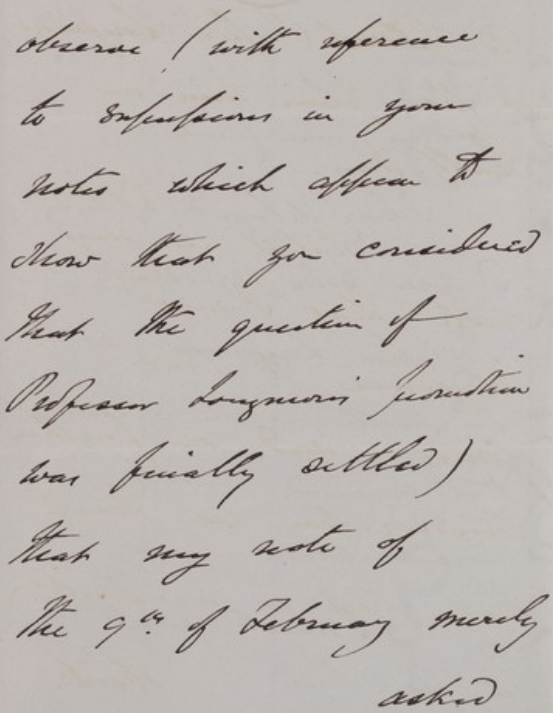 observe (with reference
to expressions in your
notes which appear to
show that you considered
that the question of
Professor Longmore's promotion
was finally settled)
that my note of
the 9th. of February merely
asked